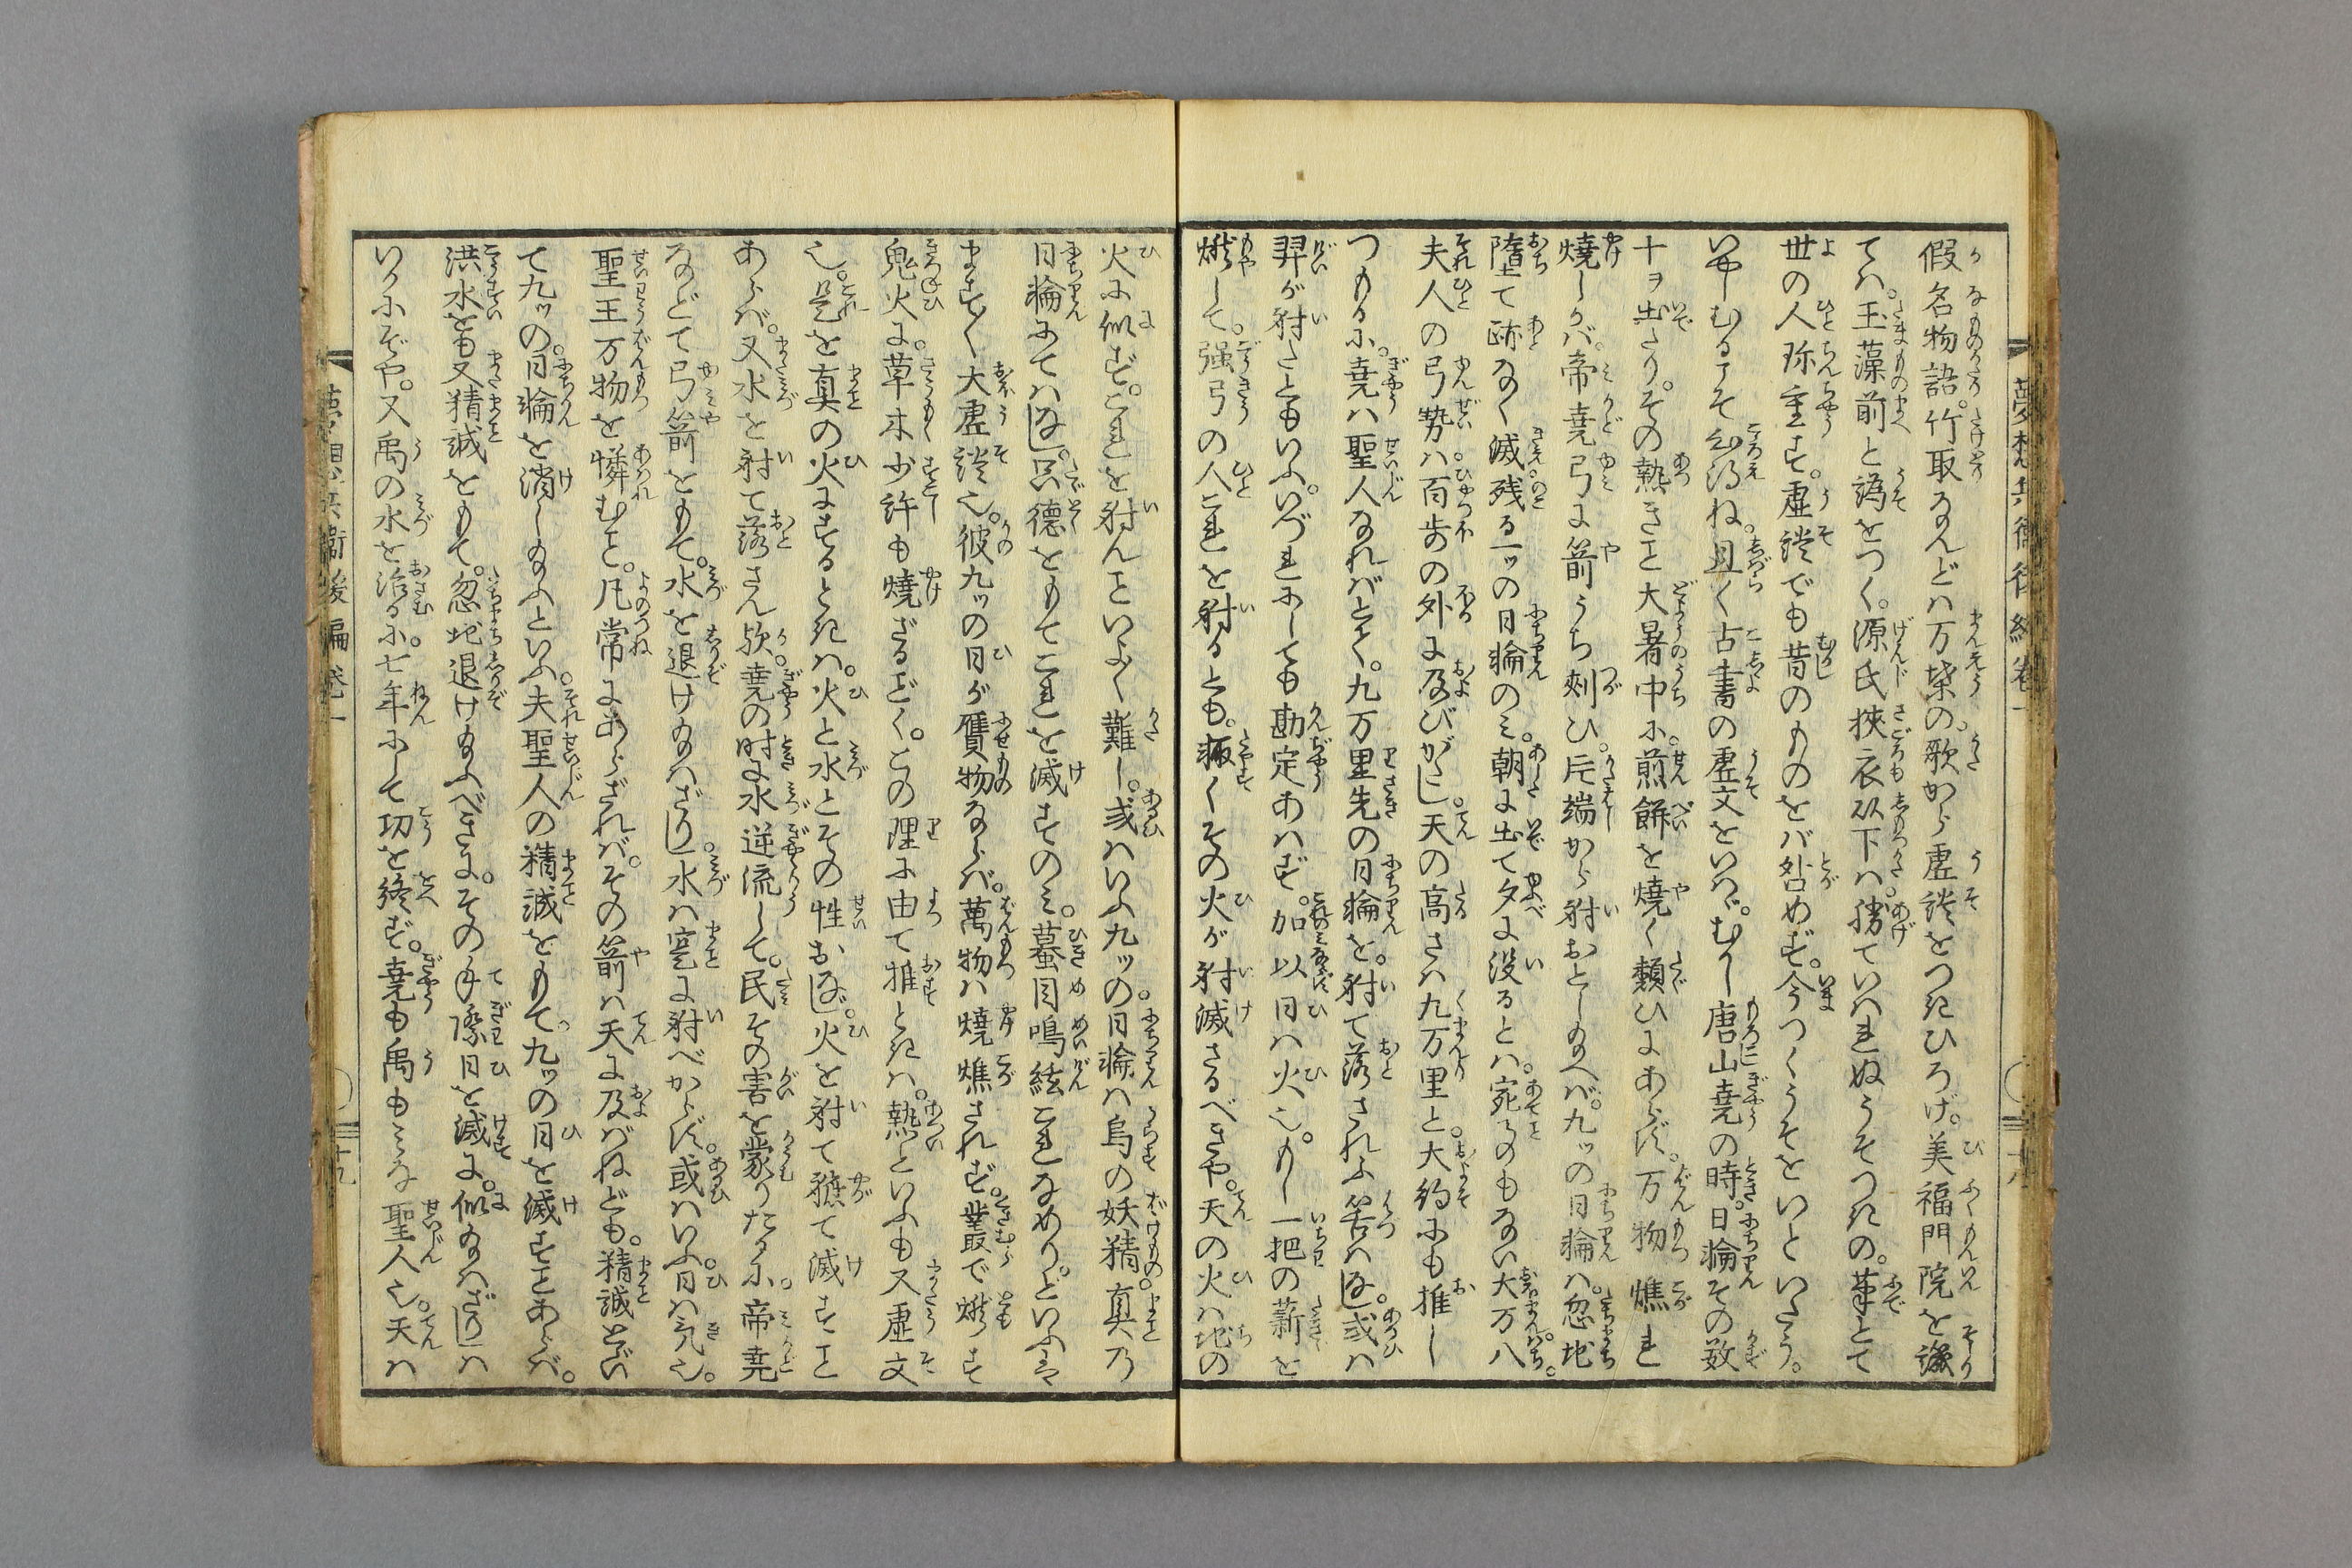 夢想兵衛後編巻一
假名物語竹取なんどハ万葉の歌から虚談をつきひろげ。美福門院を譏
てハ。玉藻前と譌をつく。源氏狭衣以下ハ。勝ていはれぬうそつきの。筆とて
世の人珎重す。虚談でも昔のものをバ咎めず。今つくうそをいといたう。
いやしむるこそ心得ね。且く古書の虚文をいはゞ。むかし唐山堯の時。日輪その数
十ヲ出たり。その熱きこと大暑中に。煎餅を焼く類ひにあらず。万物燋れ
焼しかバ。帝堯弓に箭うち刾ひ。片端から射おとし給へバ。九ッの日輪ハ。忽地
墮て跡なく滅。残る一ッの日輪のミ。朝に出て夕に没るとハ。宛ものもない大万八。
夫人の弓勢ハ。百歩の外に及びがたし。天の高さハ九万里と。大約にも推し
つもるに。堯ハ聖人なれバとて。九万里先の日輪を。射て落さるゝ筈ハなし。或ハ
羿が射たともいふ。いづれにしても勘定あハず。加以日ハ火也。もし一把の薪を
燃して。强弓の人これを射るとも。輙くその火が射滅さるべきや。天の火ハ地の
火に似ず。これを射んこといよ〱難し。或ハいふ九ッの。日輪ハ烏の妖精。真乃
日輪にてハなし。只徳をもてこれを滅すのミ。蟇目鳴絃これなめり。といふハ
ます〱大虚談也。彼九ッの日が贋物ならバ。萬物ハ焼燋されず。叢で燃す
鬼火に。草木少許も焼ざるごとく。この理に由て推ときハ。熱といふも又虚文
也。是を真の火にするときハ。火と水とその性おなじ。火を射て禳て滅すこと
あらバ。又水を射て落さん歟。堯の时に水逆流して。民その害を蒙りたるに。帝堯
などて弓箭をもて。水を退け給ハざりし。水ハ寔に射べからず。或ハいふ。日ハ気也。
聖王万物を憐むこと。凡常にあらざれバ。その箭ハ天に及バねども。精誠をい
て九ッの。日輪を消し給ふといふ。夫聖人の精誠をもて。九ッの日を滅すことあらバ。
洪水をも又精誠をもて。忽地退け給ふべきに。その手際日を滅に。似給ハざりしハ
いかにぞや。又禹の水を治るに。七年にして功を終ず。堯も禹もミな聖人也。天ハ
夢想兵衛後編巻一
十九